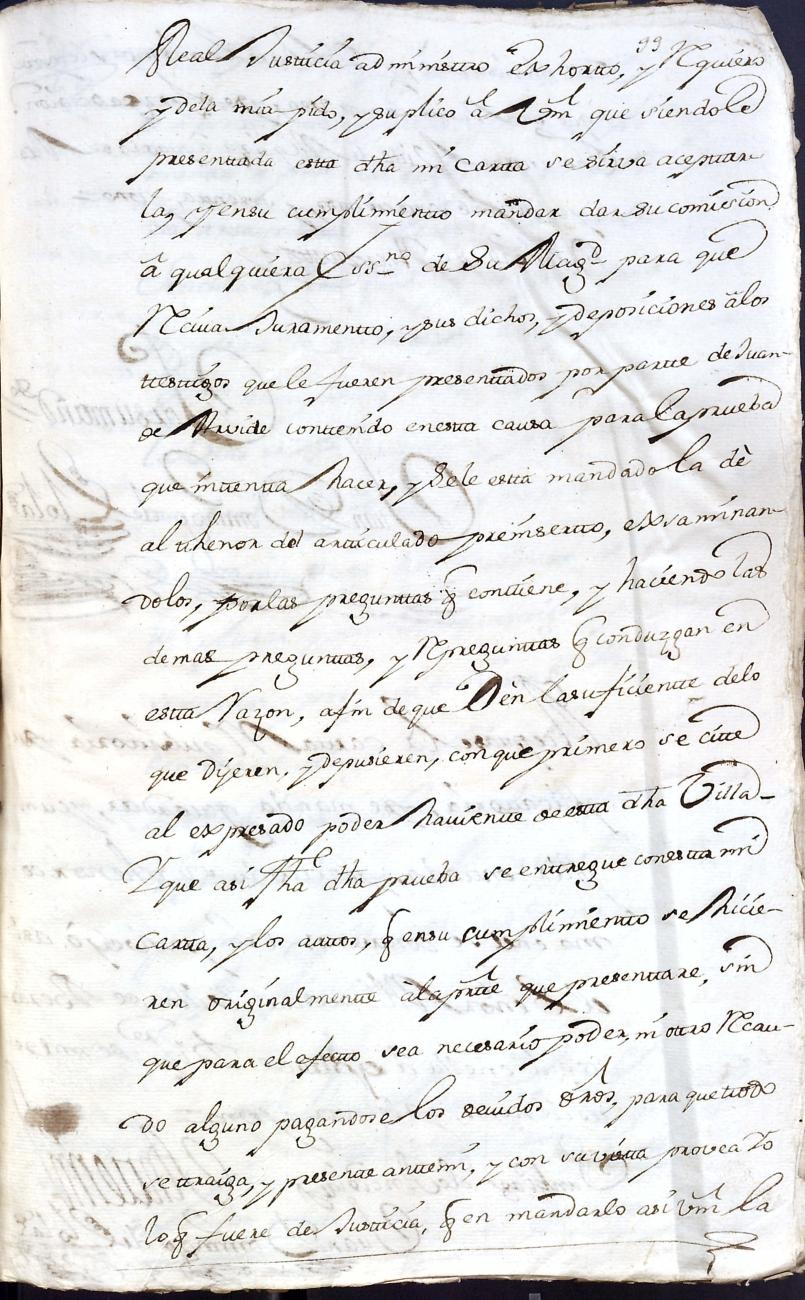 99
Real Justicia administro exhorto, y Rquiero
y dela mia pido, y suplico â Vm que siendole
presentada esta dha mi Carta se sirva aceptar
la, y ensu cumplimiento mandar dar su comicion
â qualquiera Essno de Su Magd para que
Rciva Juramento, y sus dichos, y deposiciones âlos
testigos que le fueren presentados por parte de Juan
de contenido enesta causa para la prueba
que intenta hacer, y Se le esta mandado la dè
al thenor del articulado preinserto, exsaminan
dolos, por las preguntas q contiene, y haciendo las
demas preguntas, y Rpreguntas q conduzgan en
esta Razon, afin de que Dèn la suficiente delo
que dijeren, y depusieren, con que primero se citte
al expresado poder haviente de esta dha Villa
Y que asi fha dha prueba se entregue con esta mi
Carta, y los autos, q ensu cumplimiento se hicie-
ren originalmente âla parte que presentare, sin
que para el efecto sea necesario poder, ni otro Rcau-
do alguno pagandose los devidos drôs, para que todo
se traiga, y presente ante mi, y con su vista provea Yo
lo q fuere de Justicia, q en mandarlo asi Vm la